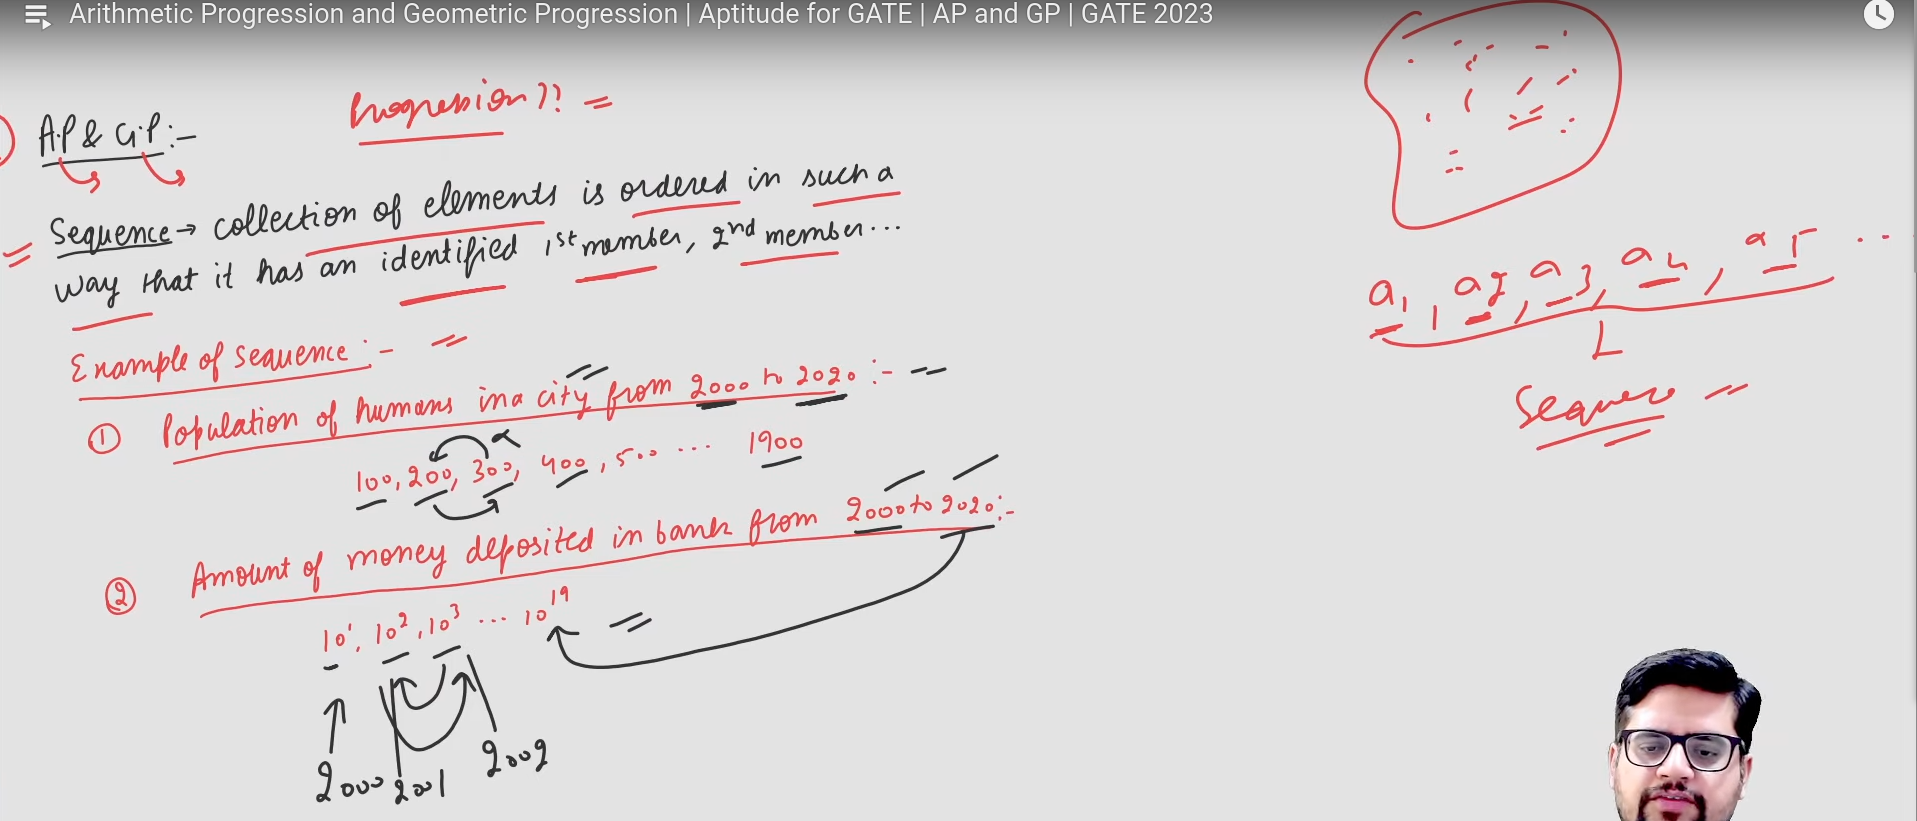 Arithmetic Progression and Geometric Progression | Aptitude for GATE | AP and GP | GATE 2023
Progression ?? =
A.P & G.P :-
Sequence → collection of elements is ordered in such a
way that it has an identified 1st member, 2nd member...
Example of sequence :-
① Population of humans in a city from 2000 to 2020 :-
100, 200, 300, 400, 500 ... 1900
② Amount of money deposited in bank from 2000 to 2020 :-
10¹, 10², 10³ ... 10¹⁹
2000 2001 2002
a1, a2, a3, a4, a5 ...